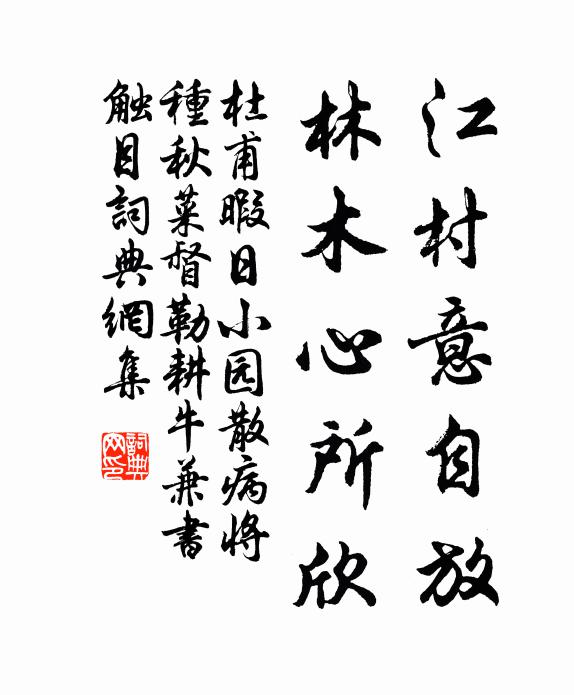 江村意自放
林木心所欣
杜甫暇日小园散病将
種秋菜督勒耕牛兼書
触目詞典網集
詞典网印